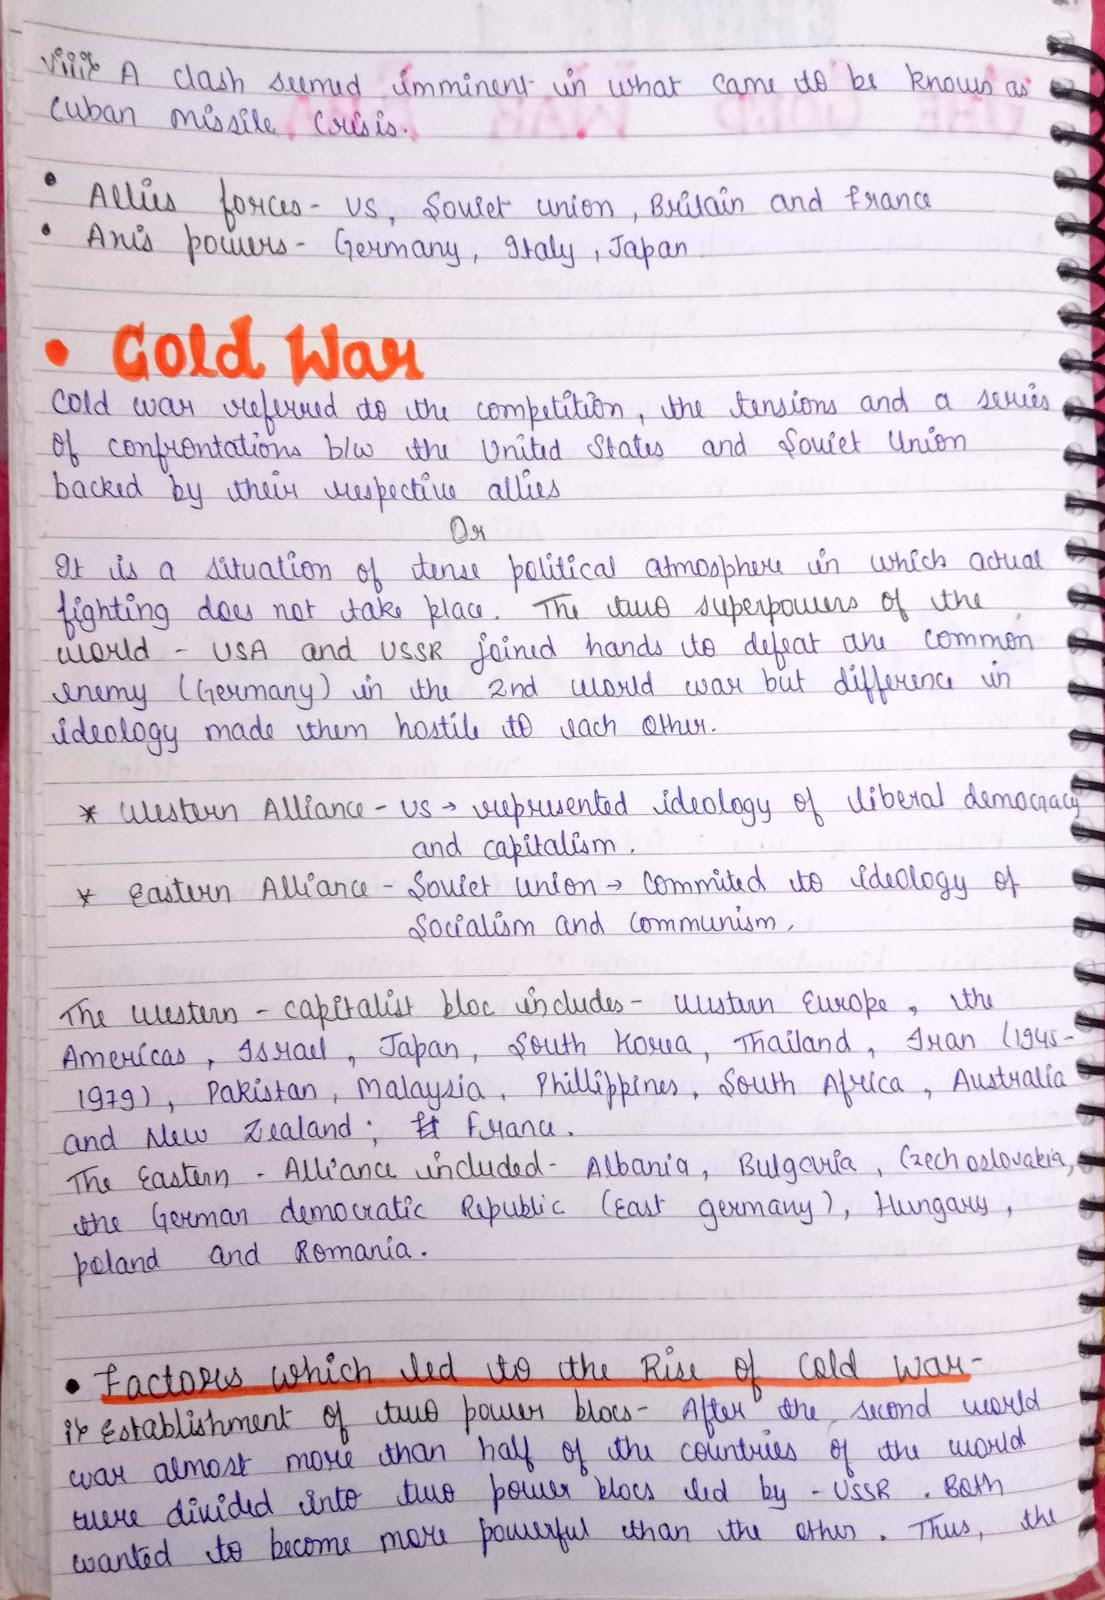 viii) A clash seemed imminent in what came to be known as
Cuban missile Crisis.
• Allies forces - US, Soviet Union, Britain and France
• Axis powers - Germany, Italy, Japan
• Cold War
Cold war referred to the competition, the tensions and a series
of confrontations b/w the United States and Soviet Union
backed by their respective allies
Or
It is a situation of tense political atmosphere in which actual
fighting does not take place. The two superpowers of the
world - USA and USSR joined hands to defeat the common
enemy (Germany) in the 2nd world war but difference in
ideology made them hostile to each other.
* Western Alliance - US → represented ideology of liberal democracy
and capitalism.
* Eastern Alliance - Soviet Union → Commited to ideology of
Socialism and Communism.
The Western - capitalist bloc includes - Western Europe, the
Americas, Israel, Japan, South Korea, Thailand, Iran (1945-
1979), Pakistan, Malaysia, Phillippines, South Africa, Australia
and New Zealand; France.
The Eastern - Alliance included - Albania, Bulgaria, Czechoslovakia,
the German democratic Republic (East germany), Hungary,
poland and Romania.
• Factors which led to the Rise of Cold War -
i) Establishment of two power blocs - After the second world
war almost more than half of the countries of the world
were divided into two power blocs led by - USSR. Both
wanted to become more powerful than the other. Thus, the